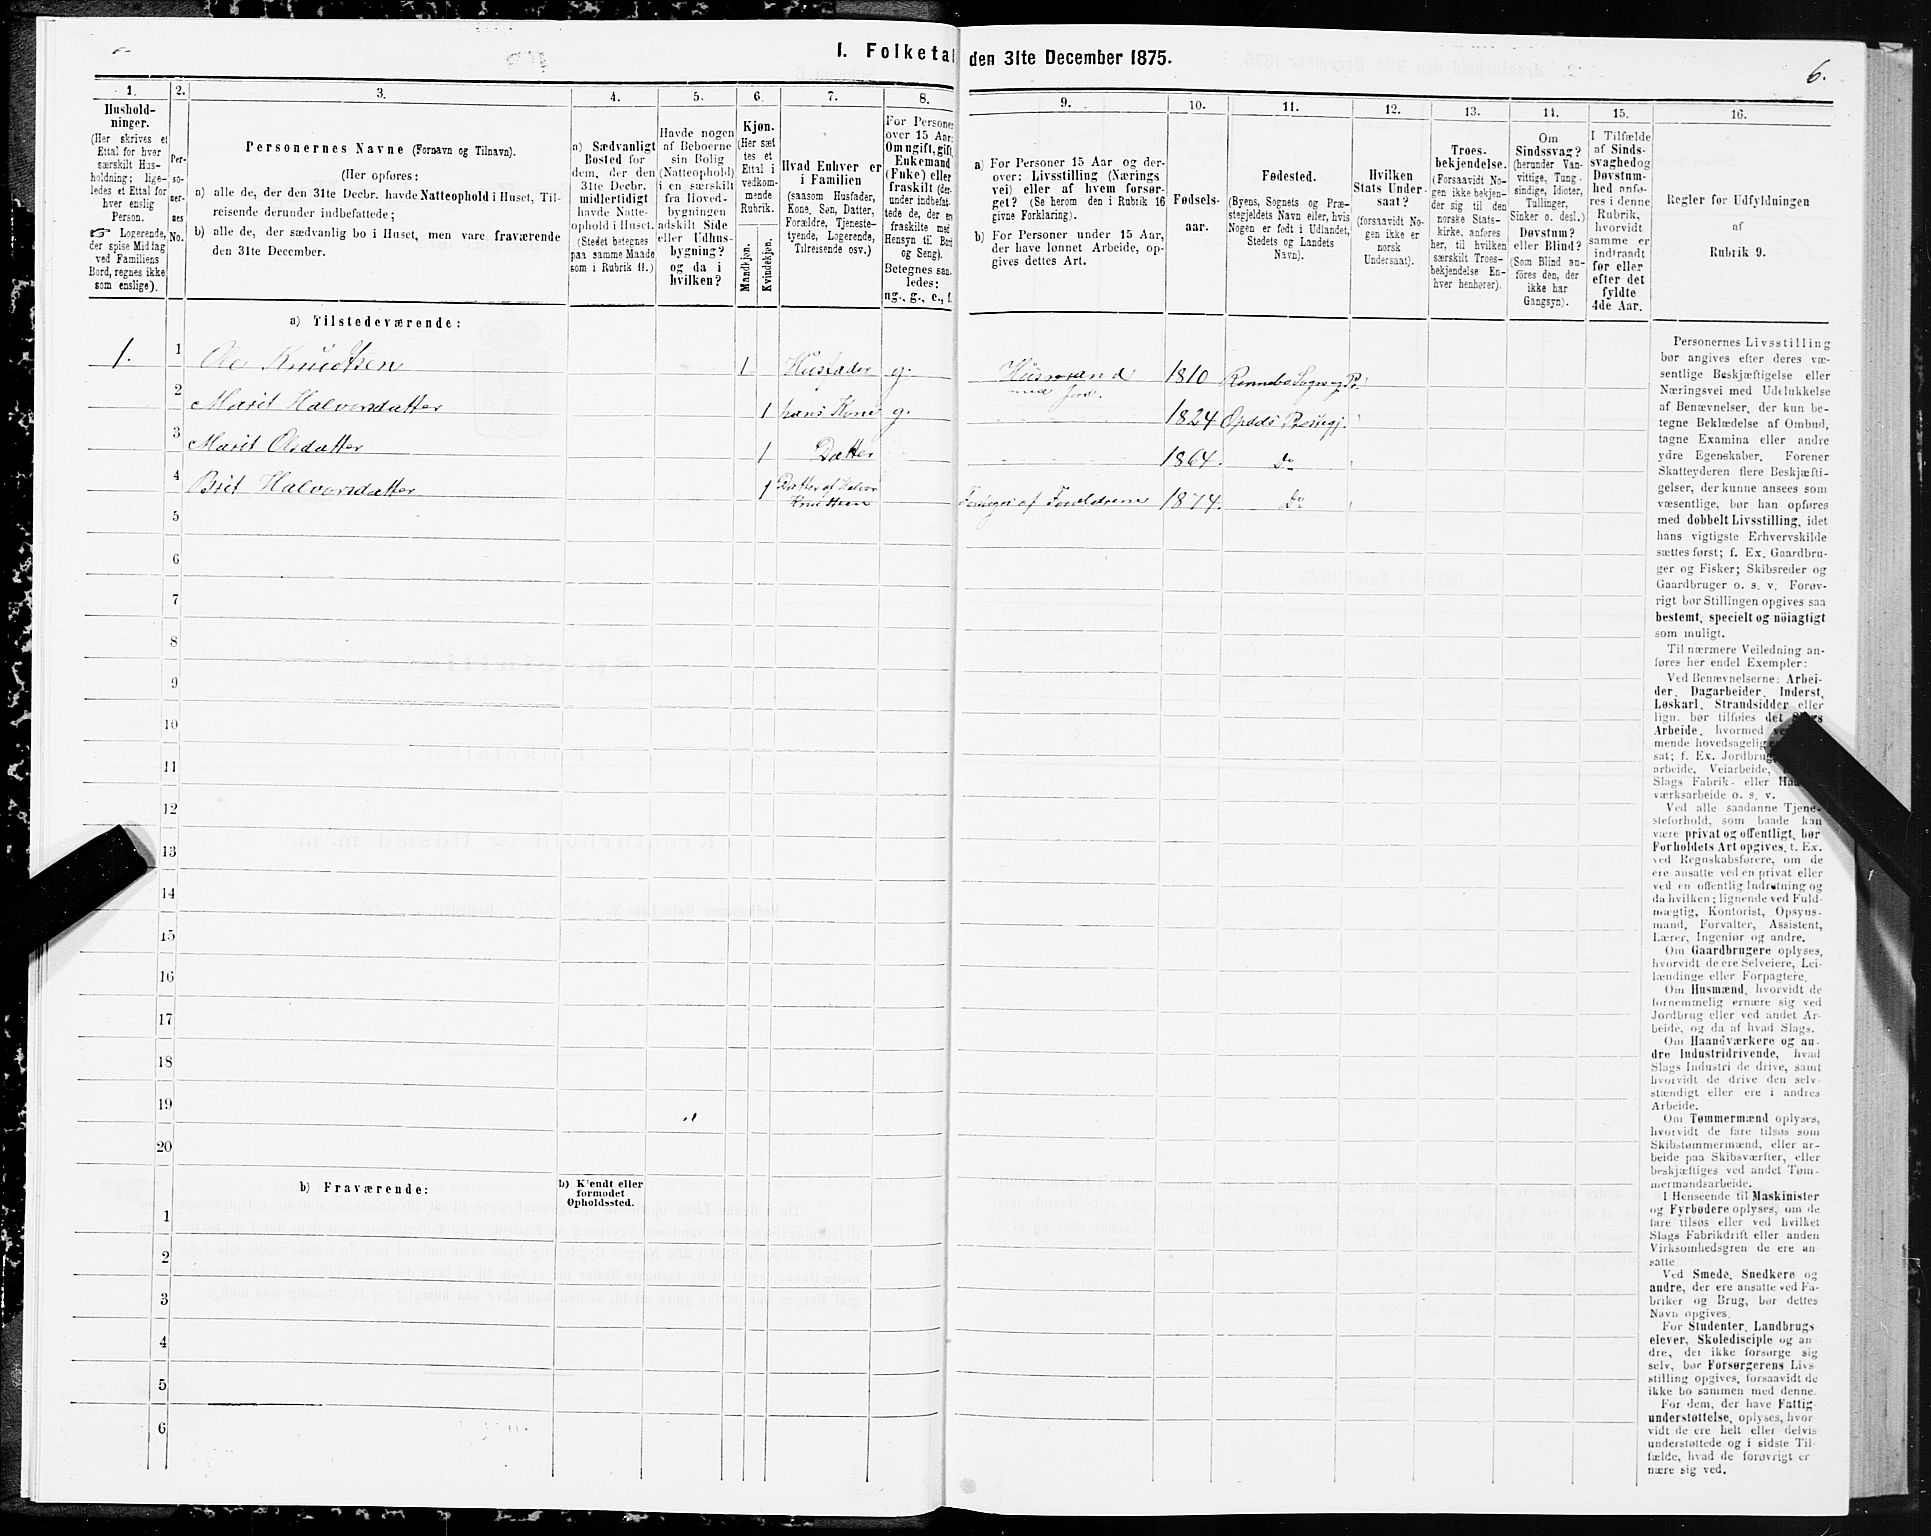 I. Folketal den 31te December 1875.
6.
1.
Hushold-
ninger.
(Her skrives et
Ettal for hver
særskilt Hus-
holdning; lige-
ledes et Ettal for
hver enslig
Person.
☞ Logerende,
der spise Middag
ved Familiens
Bord, regnes ikke
som enslige).
2.
Per-
so-
ner-
nes
No.
3.
Personernes Navne (Fornavn og Tilnavn).
(Her opføres:
a) alle de, der den 31te Decbr. havde Natteophold i Huset, Til-
reisende derunder indbefattede;
b) alle de, der sædvanlig bo i Huset, men vare fraværende
den 31te December.
4.
a) Sædvanligt
Bosted for
dem, der den
31te Decbr.
midlertidigt
havde Natte-
ophold i Huset.
(Stedet betegnes
paa samme Maade
som i Rubrik 11.)
5.
Havde nogen
af Beboerne
sin Bolig
(Natteophold)
i en særskilt
fra Hoved-
bygningen
adskilt Side
eller Udhus-
bygning?
og da i
hvilken?
6.
Kjøn.
(Her sæt
tes et
Ettal i
vedkom-
mende
Rubrik.
Mandkjøn.
Kvindekjøn.
7.
Hvad Enhver er
i Familien
(saasom Husfader,
Kone, Søn, Datter,
Forældre, Tjeneste-
tyende, Logerende,
Tilreisende osv.)
8.
For Personer
over 15 Aar:
Om ugift, gift,
Enkemand
(Enke) eller
fraskilt (der-
under indbefat-
tede de, der er
fraskilte med
Hensyn til Bord
og Seng).
Betegnes saa-
ledes:
ug., g., e., f.
9.
a) For Personer 15 Aar og der-
over: Livsstilling (Nærings
vei) eller af hvem forsør-
get? (Se herom den i Rubrik 16
givne Forklaring).
b) For Personer under 15 Aar,
der have lønnet Arbeide, op-
gives dettes Art.
10.
Fødsels-
aar.
11.
Fødested.
(Byens, Sognets og Præ-
stegjeldets Navn eller, hvis
Nogen er født i Udlandet,
Stedets og Landets
Navn).
12.
Hvilken
Stats Under-
saat?
(forsaavidt No-
gen ikke er
norsk
Undersaat).
13.
Troes-
bekjendelse.
(Forsaavidt No-
gen ikke bekjen-
der sig til den
norske Stats-
kirke, anføres
her, til hvilken
særskilt Troes-
bekjendelse En-
hver henhører).
14.
Om
Sindssvag?
(herunder Van-
vittige, Tung-
sindige, Idioter,
Tullinger,
Sinker o. desl.)
Døvstum?
eller Blind?
(Som Blind an-
føres den, der
ikke har
Gangsyn).
15.
I Tilfælde
af Sinds-
svaghed og
Døvstum-
hed anfø-
res i denne
Rubrik,
hvorvidt
samme er
indtraadt
før eller
efter det
fyldte
4de Aar.
16.
Regler for Udfyldningen
af
Rubrik 9.
a) Tilstedeværende:
1. 1 Ole Knudtsen 1 Husfader g. Husmand med Jord. 1810 Rennebo Sogn og Pr.
2 Marit Halvorsdatter 1 hans Kone g. 1824 Opdals Prestegj.
3 Marit Olsdatter 1 Datter 1864. Do
4 Brit Halvorsdatter 1 Datter af Halvor Knudtsen Forsørges af Forældrene 1874. Do
5
6
7
8
9
10
11
12
13
14
15
16
17
18
19
20
b) Fraværende:
b) Kjendt eller
formodet
Opholdssted.
1
2
3
4
5
6
Personernes Livsstilling
bør angives efter deres væ-
sentlige Beskjæftigelse eller
Næringsvei med Udelukkelse
af Benævnelser, der kun be-
tegne Beklædelse af Ombud,
tagne Examina eller andre
ydre Egenskaber. Forener
Skatteyderen flere Beskjæfti-
gelser, der kunne ansees som
væsentlige, bør han opføres
med dobbelt Livsstilling, idet
hans vigtigste Erhvervskilde
sættes først; f. Ex. Gaardbru-
ger og Fisker; Skibsreder og
Gaardbruger o. s. v. Forøv-
rigt bør Stillingen opgives saa
bestemt, specielt og nöiagtigt
som muligt.
Til nærmere Veiledning an-
føres her endel Exempler:
Ved Benævnelserne: Arbei-
der, Dagarbeider, Inderst,
Løskarl, Strandsidder eller
lign. bør tilføies det Slags
Arbeide, hvormed
mende hovedsagelig
sat; f. Ex. Jordbrug
arbeide, Veiarbeide,
Slags Fabrik- eller
værksarbeide o. s. v.
Ved alle saadanne Tjene-
steforhold, som baade kan
være privat og offentligt, bør
Forholdets Art opgives, t. Ex.
ved Regnskabsførere, om de
ere ansatte ved en privat eller
ved en offentlig Indretning og
da hvilken; lignende ved Fuld-
mægtig, Kontorist, Opsyns-
mand, Forvalter, Assistent,
Lærer, Ingeniør og andre.
Om Gaardbrugere oplyses,
hvorvidt de ere Selveiere, Lei-
lændinge eller Forpagtere.
Om Husmænd, hvorvidt de
fornemmelig ernære sig ved
Jordbrug eller ved andet Ar-
beide, og da af hvad Slags.
Om Haandværkere og an-
dre Industridrivende, hvad
Slags Industri de drive, samt
hvorvidt de drive den selv-
stændigt eller ere i andres
Arbeide.
Om Tømmermænd oplyses,
hvorvidt de fare tilsøs som
Skibstømmermænd, eller ar-
beide paa Skibsværfter, eller
beskjæftiges ved andet Tøm-
mermandsarbeide.
I Henseende til Maskinister
og Fyrbødere oplyses, om de
fare tilsøs eller ved hvilket
Slags Fabrikdrift eller anden
Virksomhedsgren de ere an-
satte.
Ved Smede, Snedkere og
andre, der ere ansatte ved Fa-
briker og Brug, bør dettes
Navn opgives.
For Studenter, Landbrugs
elever, Skoledisciple og an-
dre, der ikke forsørge sig
selv, bør Forsørgerens Livs-
stilling opgives, forsaavidt de
ikke bo sammen med denne.
For dem, der have Fattig
understøttelse, oplyses, hvor
vidt de ere helt eller delvis
understøttede og i sidste Til-
fælde, hvad de forøvrigt er
nære sig ved.